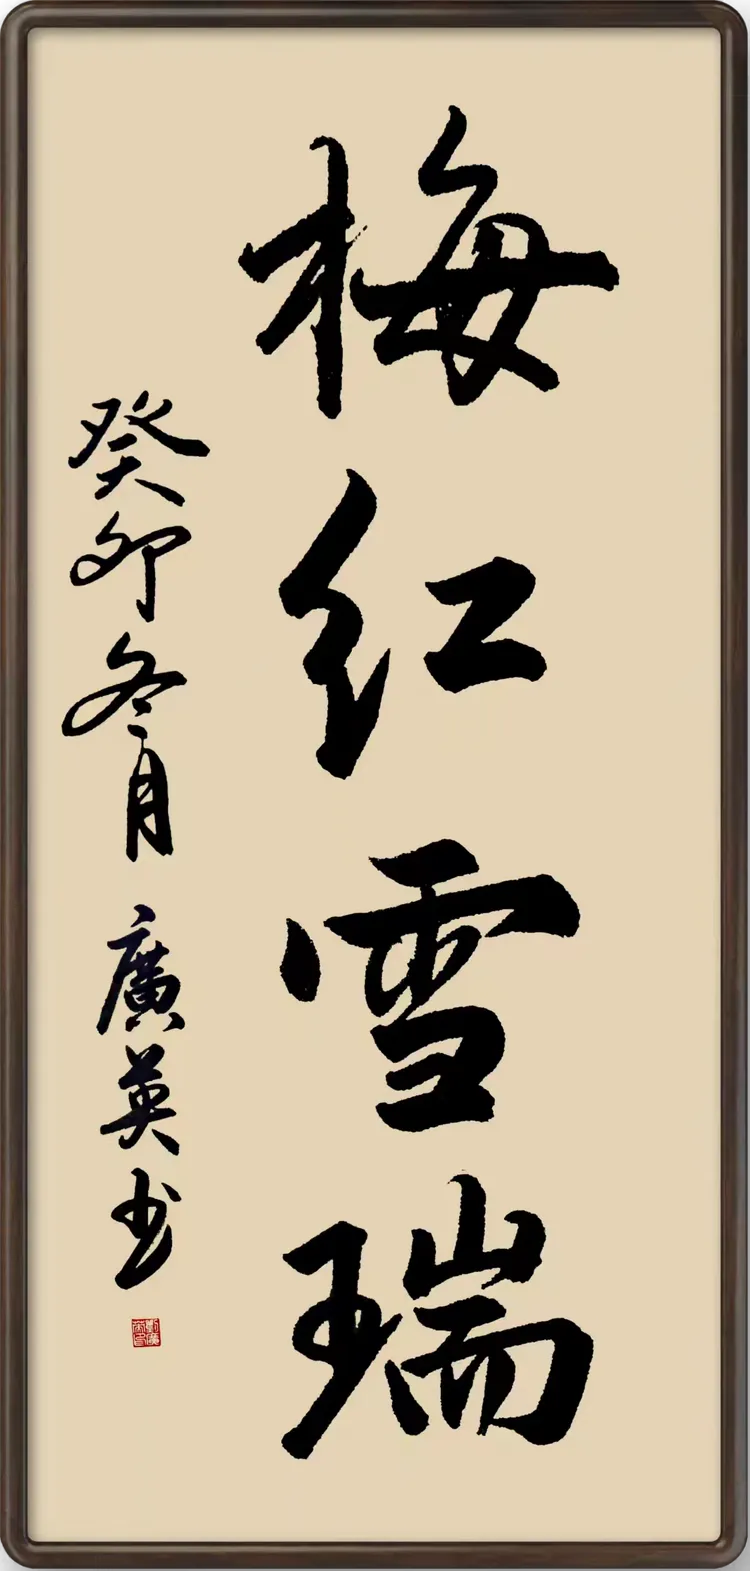 梅红雪瑞
癸卯冬月 廣英书